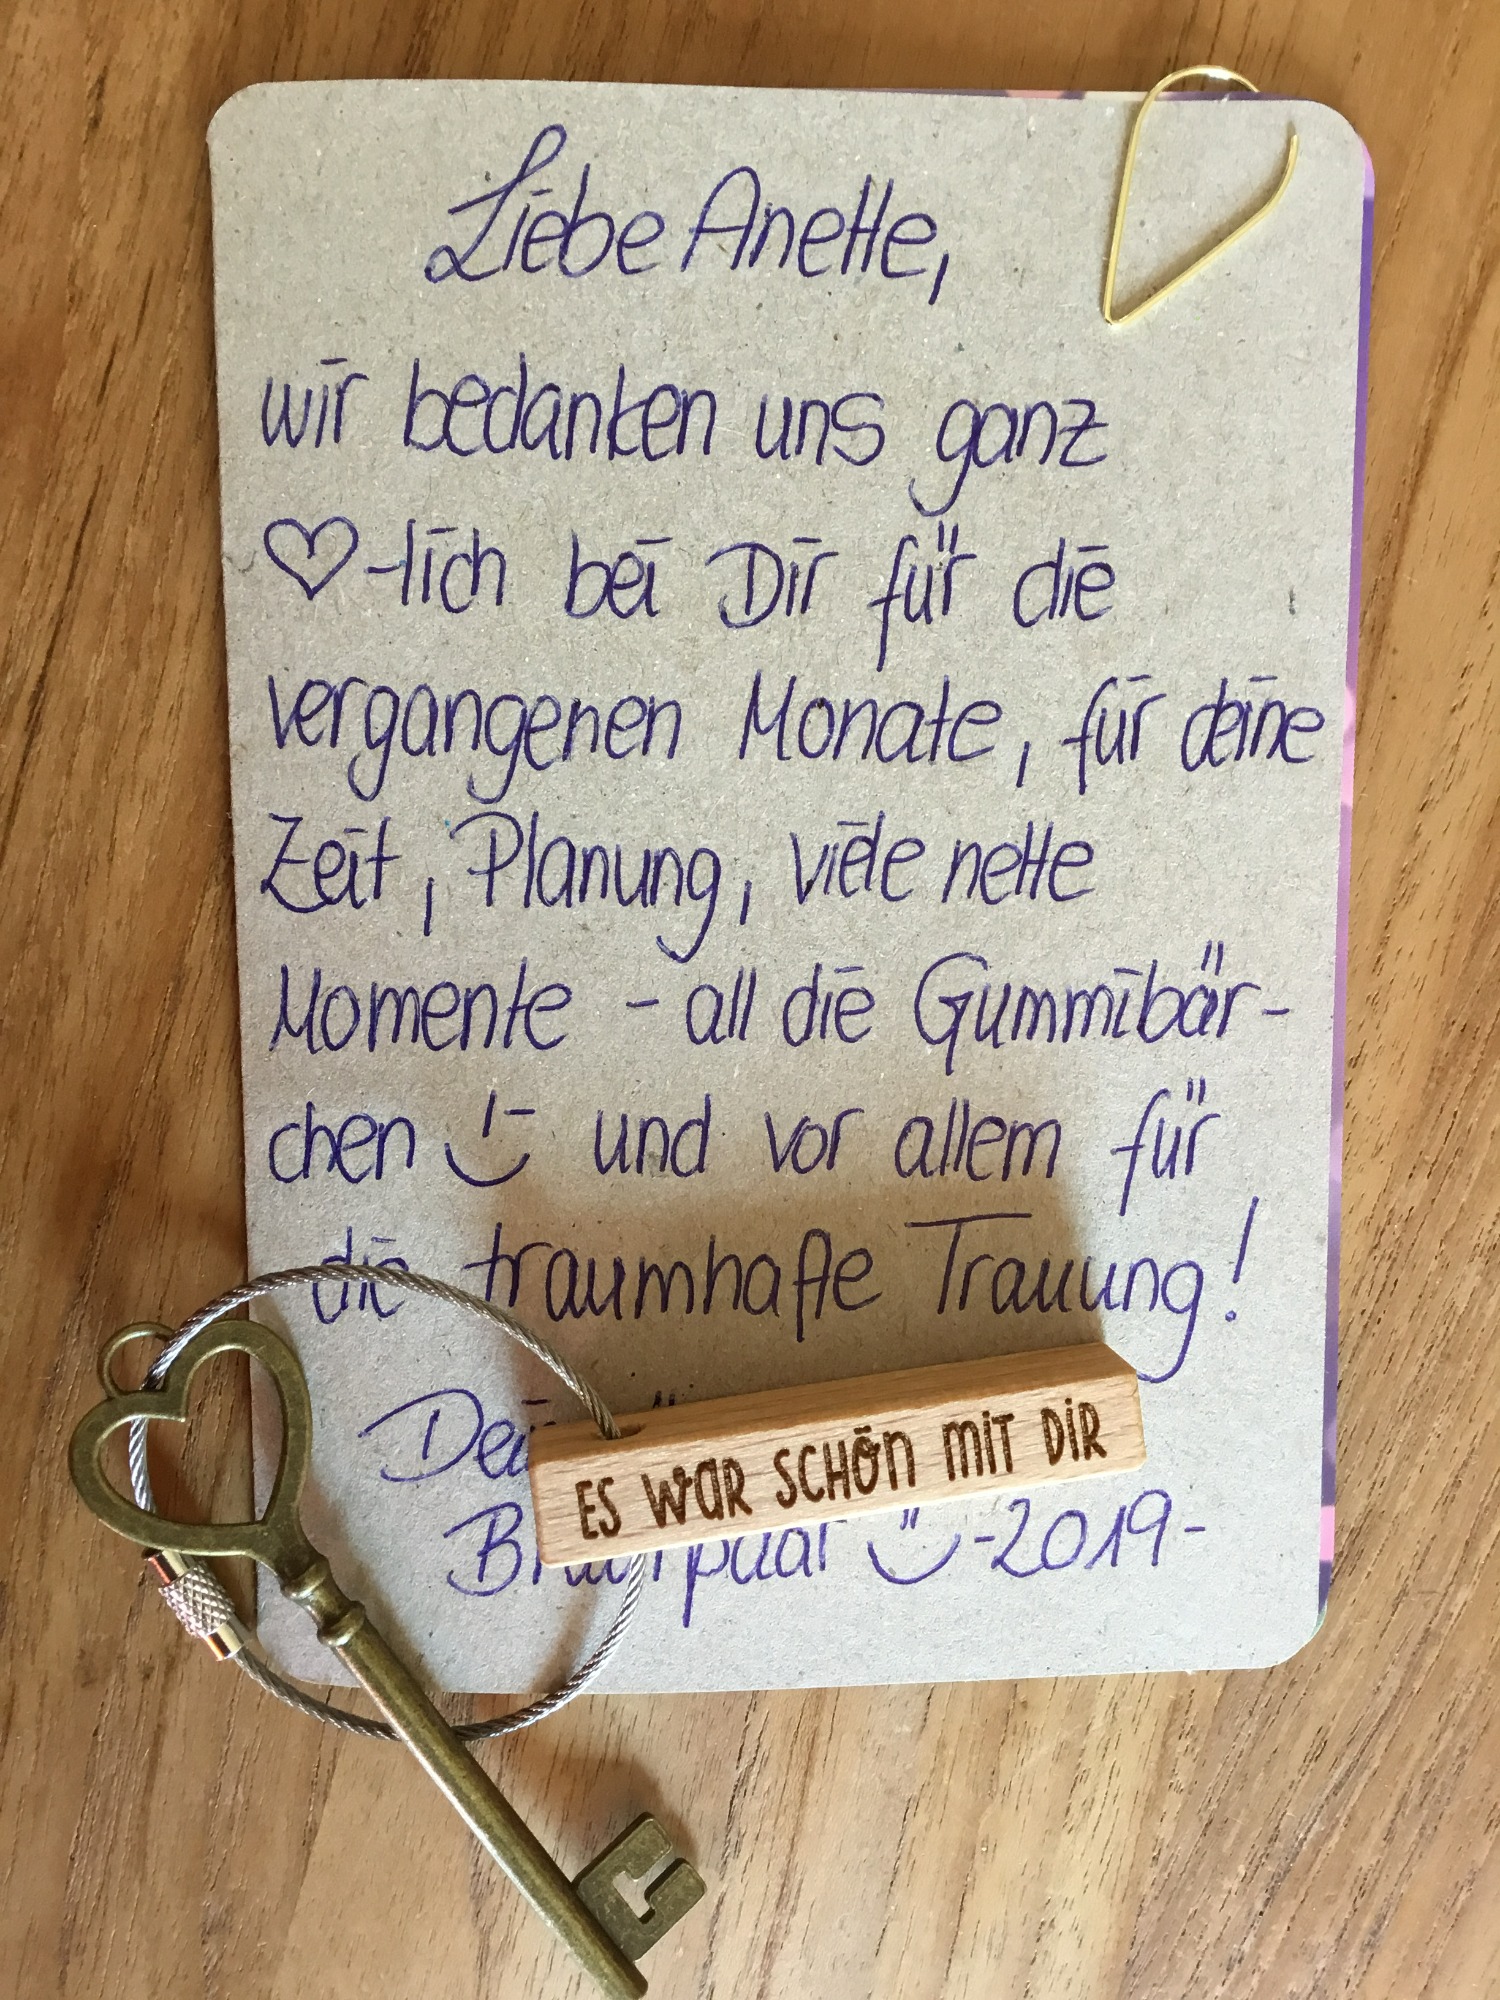 Liebe Anette,
wir bedanken uns ganz
♡-lich bei Dir für die
vergangenen Monate, für deine
Zeit, Planung, viele nette
Momente - all die Gummibär-
chen und vor allem für
die traumhafte Trauung!
ES WAR SCHÖN MIT DIR
Brautpaar -2019-